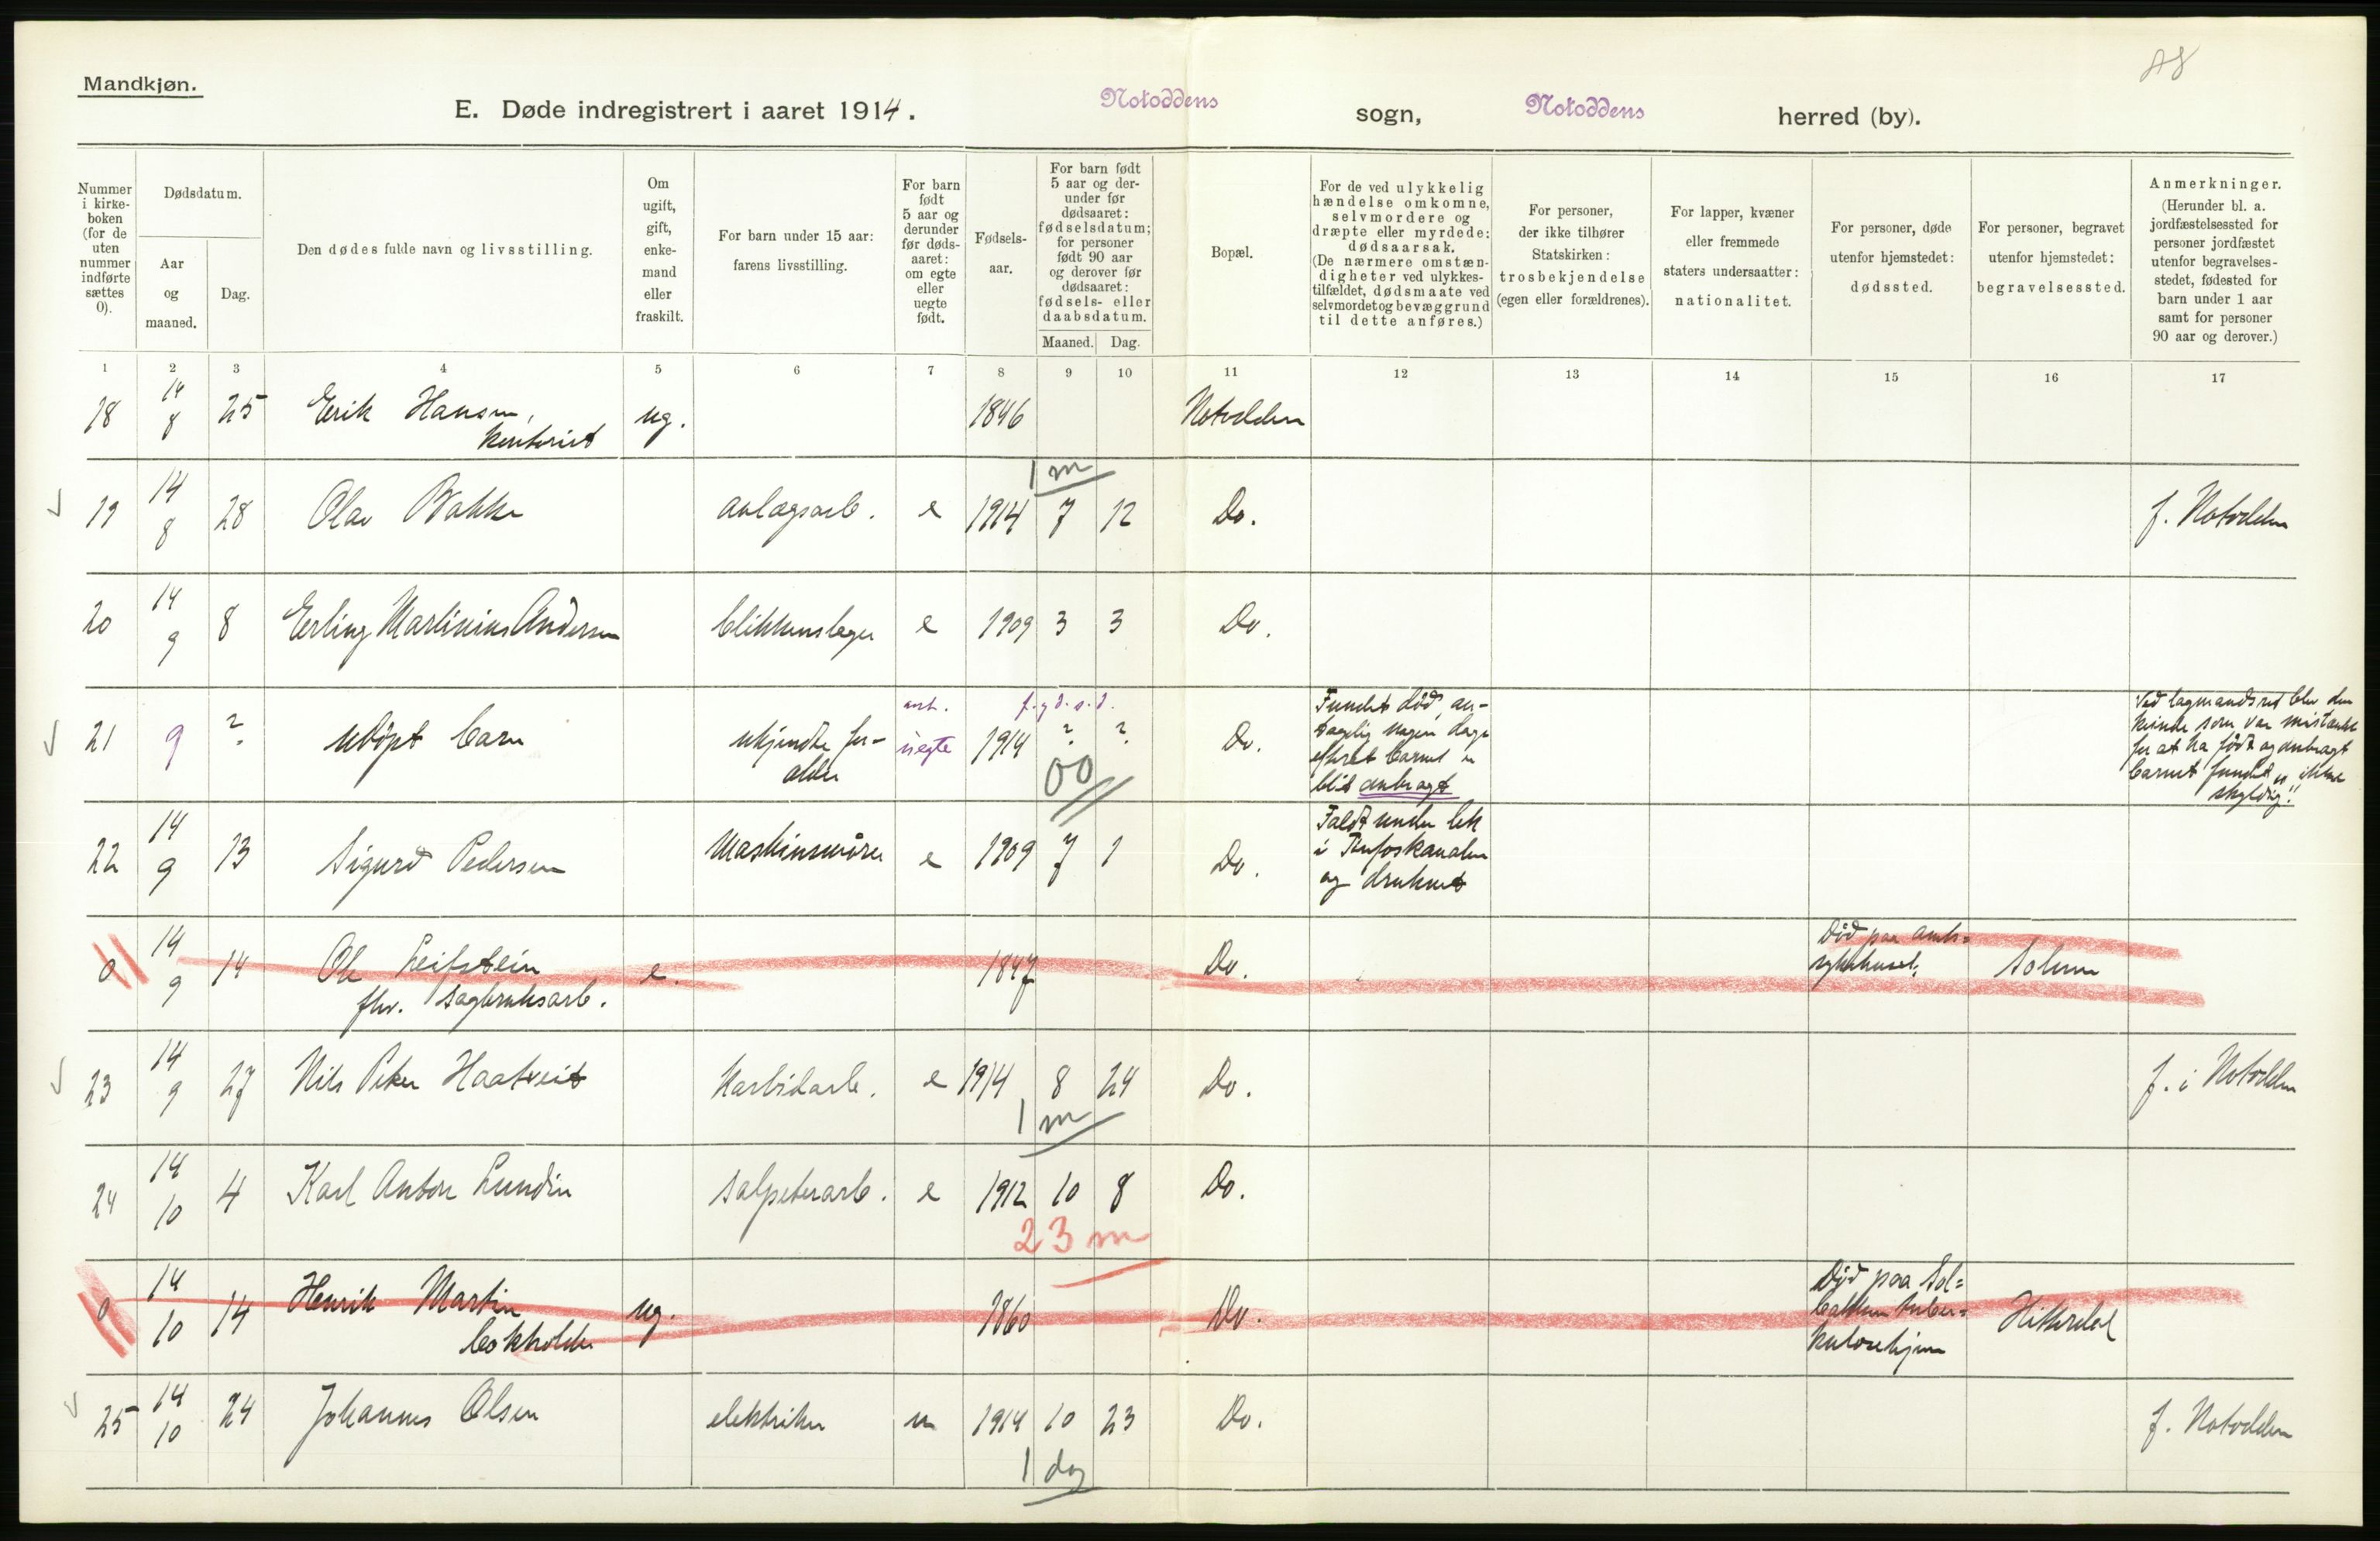 Mandkjøn.
E. Døde indregistrert i aaret 1914. Notoddens sogn, Notoddens herred (by).
Nummer i kirke-boken (for de uten nummer indførte sættes 0).
Dødsdatum.
Aar og maaned.
Dag.
Den dødes fulde navn og livsstilling.
Om ugift, gift, enke-mand eller fraskilt.
For barn under 15 aar: farens livsstilling.
For barn født 5 aar og derunder før døds-aaret: om egte eller uegte født.
Fødsels-aar.
For barn født 5 aar og der-under før dødsaaret: fødselsdatum; for personer født 90 aar og derover før dødsaaret: fødsels- eller daabsdatum.
Maaned. Dag.
Bopæl.
For de ved ulykkelig hændelse omkomne, selvmordere og dræpte eller myrdede: dødsaarsak. (De nærmere omstæn-digheter ved ulykkes-tilfældet, dødsmaate ved selvmordet og bevæggrund til dette anføres.)
For personer, der ikke tilhører Statskirken: trosbekjendelse (egen eller forældrenes).
For lapper, kvæner eller fremmede staters undersaatter: nationalitet.
For personer, døde utenfor hjemstedet: dødssted.
For personer, begravet utenfor hjemstedet: begravelsessted.
Anmerkninger. (Herunder bl. a. jordfæstelsessted for personer jordfæstet utenfor begravelses-stedet, fødested for barn under 1 aar samt for personer 90 aar og derover.)
1 2 3 4 5 6 7 8 9 10 11 12 13 14 15 16 17
18 14 8 25 Erik Hansen, kontorist ug. 1846 Notodden
1 m
19 14 8 28 Olav Bakke anlægsarb. e 1914 7 12 Do. f. Notodden
20 14 9 8 Erling Martinius Andersen blikkenslager e 1909 3 3 Do.
ant. f.g.d.s.d.
21 9 ? udøpt barn ukjendte for-ældre uegte 1914 ? ? Do.
Fundet død, an-
tagelig nogen dage
efterat barnet er
blit anbragt
Ved lagmandsret blev den
kvinde som var mistænkt
for at ha født og anbragt
barnet fundet „ikke
skyldig."
00
22 14 9 13 Sigurd Pedersen Maskinsmører e 1909 7 1 Do.
Faldt under lek
i Tinfoskanalen
og druknet
0 14 9 14 Ole Leitstein fhv. sagbruksarb. e. 1847 Do.
Død paa amts=
sykehuset.
Solum
23 14 9 27 Nils Peter Haatveit karbidarb. e 1914 8 24 Do. f. i Notodden
1 m
24 14 10 4 Karl Anton Lundin salpeterarb. e 1912 10 8 Do.
23 m
0 14 10 14 Henrik Martin bokholder ug. 1860 Do.
Død paa Sol=
bakken tuber=
kulosehjem
Hitterdal
25 14 10 24 Johannes Olsen elektriker u 1914 10 23 Do. f. Notodden
1 dag